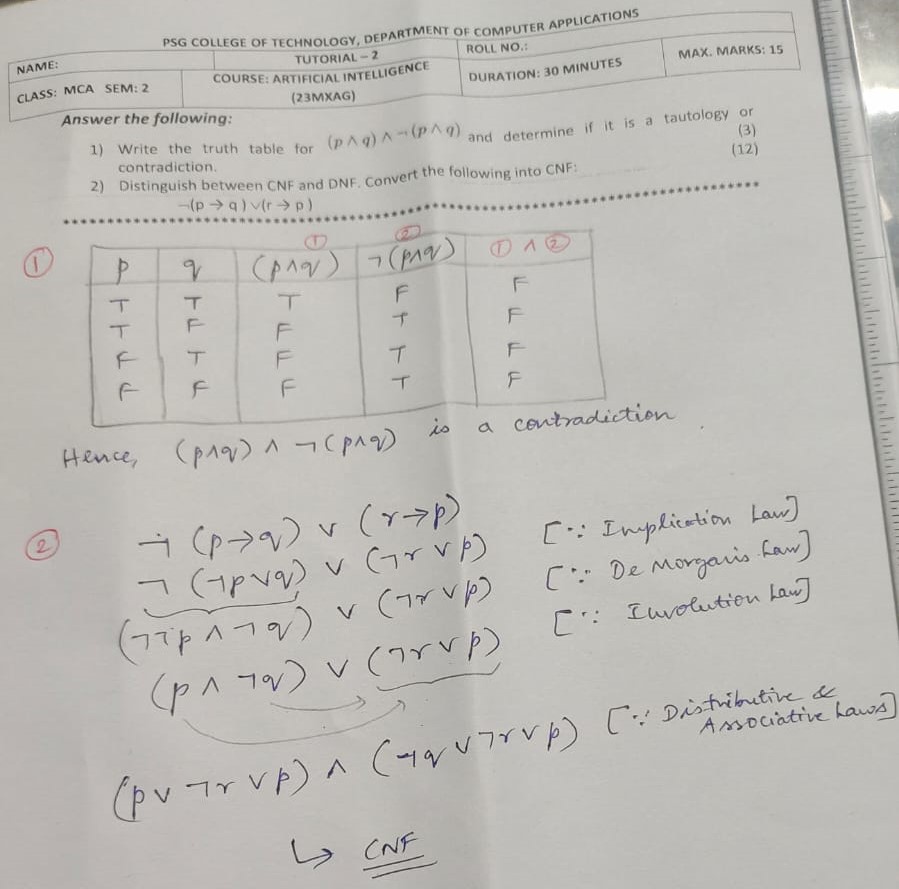 PSG COLLEGE OF TECHNOLOGY, DEPARTMENT OF COMPUTER APPLICATIONS
NAME:
TUTORIAL – 2
ROLL NO.:
MAX. MARKS: 15
CLASS: MCA SEM: 2
COURSE: ARTIFICIAL INTELLIGENCE
(23MXAG)
DURATION: 30 MINUTES
Answer the following:
1) Write the truth table for (p ∧ q) ∧ ¬(p ∧ q) and determine if it is a tautology or
contradiction. (3)
2) Distinguish between CNF and DNF. Convert the following into CNF: (12)
¬(p → q) ∨(r → p)
**********************************************************************
① ②
① p q (p∧q) ¬(p∧q) ① ∧ ②
T T T F F
T F F T F
F T F T F
F F F T F
Hence, (p∧q) ∧ ¬(p∧q) is a contradiction
② ¬(p→q) ∨ (r→p)
¬(¬p∨q) ∨ (¬r∨p) [∵ Implication Law]
(¬¬p ∧ ¬q) ∨ (¬r∨p) [∵ De Morgan's Law]
(p ∧ ¬q) ∨ (¬r∨p) [∵ Involution Law]
(p∨ ¬r ∨p) ∧ (¬q ∨ ¬r ∨ p) [∵ Distributive &
Associative Laws]
↳ CNF